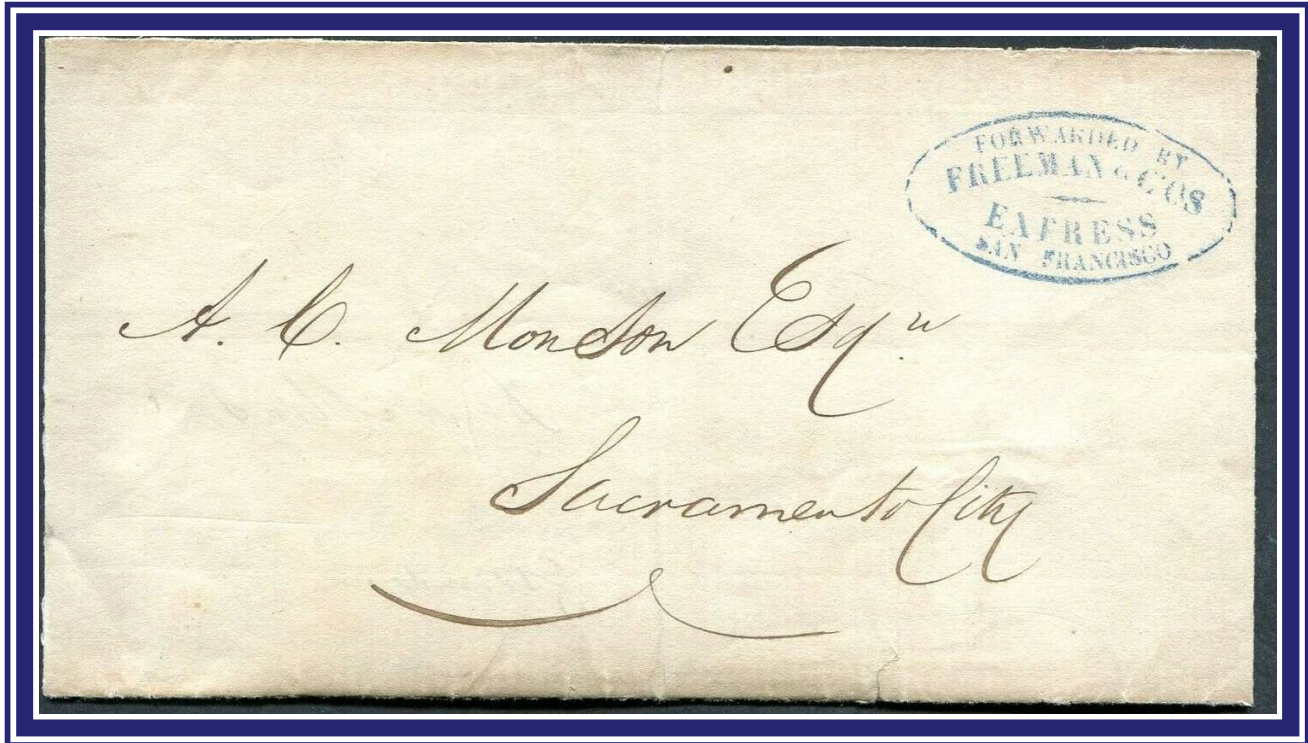 FORWARDED BY
FREEMAN & CO'S
EXPRESS
SAN FRANCISCO
A. C. Monson Esqr
Sacramento City